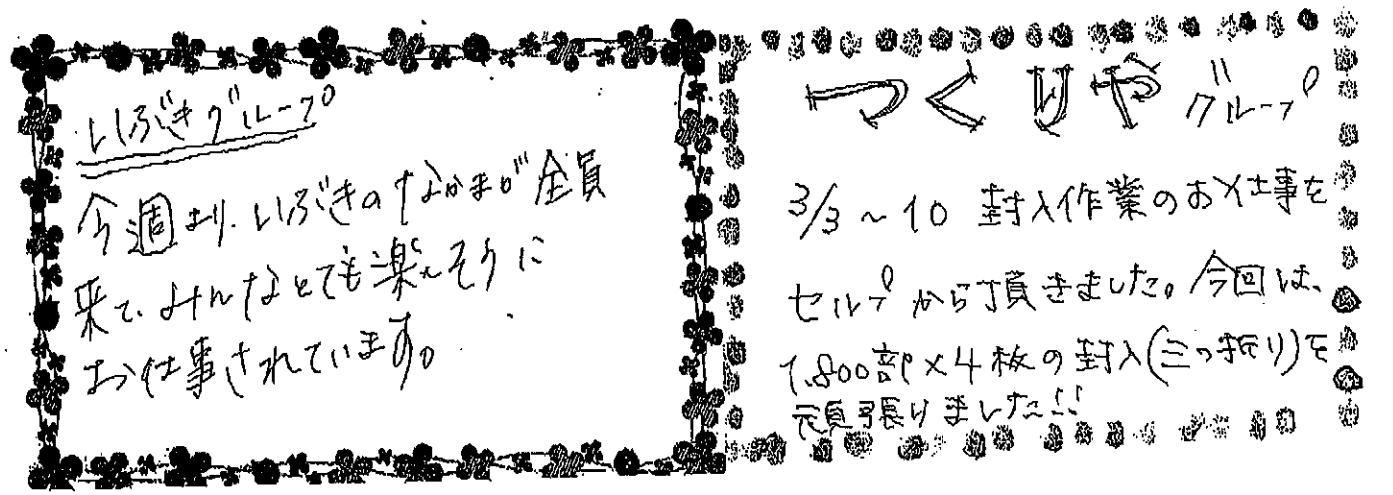 いぶきグループ
今週より、いぶきのなかまが全員
来て、みんなとても楽しそうに
お仕事されています。
つくりやグループ
3/3~10 封入作業のお仕事を
セルプから頂きました。今回は、
1,800部×4枚の封入(三つ折り)を
頑張りました!!